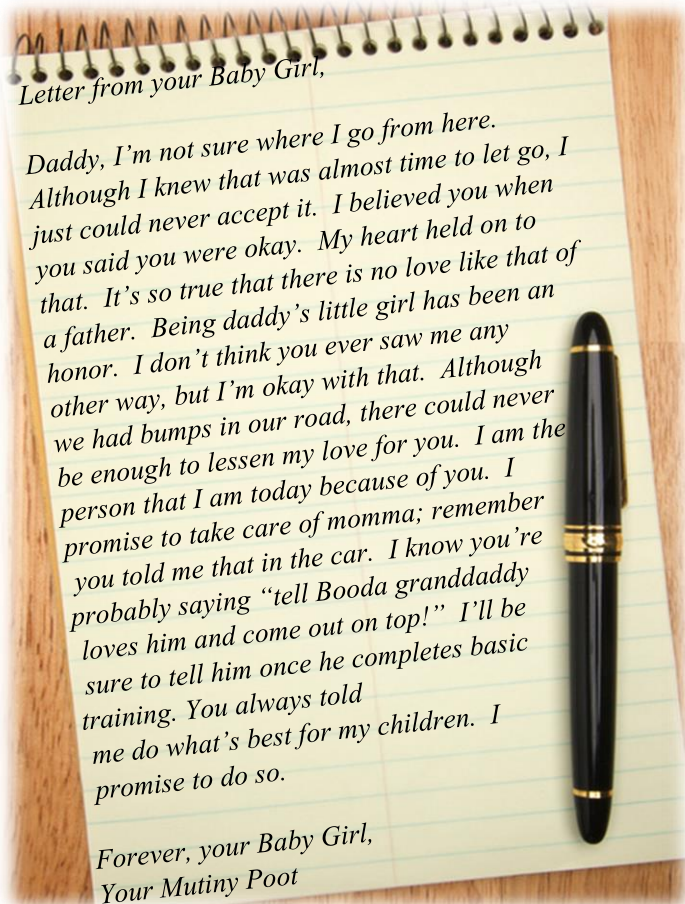 Letter from your Baby Girl,
Daddy, I’m not sure where I go from here.
Although I knew that was almost time to let go, I
just could never accept it.  I believed you when
you said you were okay.  My heart held on to
that.  It’s so true that there is no love like that of
a father.  Being daddy’s little girl has been an
honor.  I don’t think you ever saw me any
other way, but I’m okay with that.  Although
we had bumps in our road, there could never
be enough to lessen my love for you.  I am the
person that I am today because of you.  I
promise to take care of momma; remember
you told me that in the car.  I know you’re
probably saying “tell Booda granddaddy
loves him and come out on top!”  I’ll be
sure to tell him once he completes basic
training. You always told
me do what’s best for my children.  I
promise to do so.
Forever, your Baby Girl,
Your Mutiny Poot